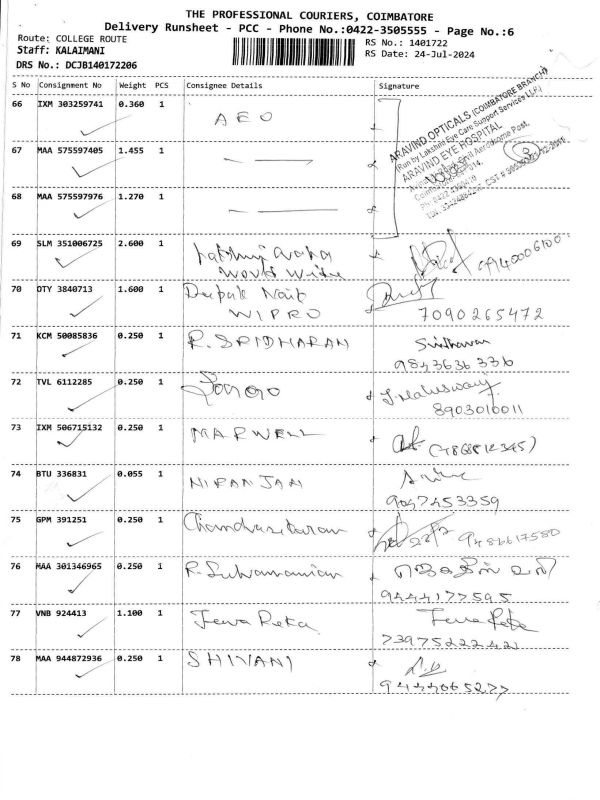 THE PROFESSIONAL COURIERS, COIMBATORE
Delivery Runsheet - PCC - Phone No.:0422-3505555 - Page No.:6
Route: COLLEGE ROUTE
RS No.: 1401722
Staff: KALAIMANI
RS Date: 24-Jul-2024
DRS No.: DCJB140172206
S No Consignment No Weight PCS Consignee Details Signature
66 IXM 303259741 0.360 1 AEO
ARAVIND OPTICALS (COIMBATORE BRANCH)
(Run by Lakshmi Eye Care Support Services LLP.)
ARAVIND EYE HOSPITAL
67 MAA 575597405 1.455 1
68 MAA 575597976 1.270 1
69 SLM 351006725 2.600 1
World Wide
70 OTY 3840713 1.600 1 Deepak Naik
WIPRO 7090265472
71 KCM 50085836 0.250 1 R. SRIDHARAN Sridharan
9843636336
72 TVL 6112285 0.250 1
8903010011
73 IXM 506715132 0.250 1 MARWELL
74 BTU 336831 0.055 1 NIRANJAN
9047453359
75 GPM 391251 0.250 1 Chandrasekaran 9486617580
76 MAA 301346965 0.250 1 R. Subramanian
9444177595
77 VNB 924413 1.100 1 Jeeva Reka Jeeva Reka
78 MAA 944872936 0.250 1 SHIVANI
9444065277